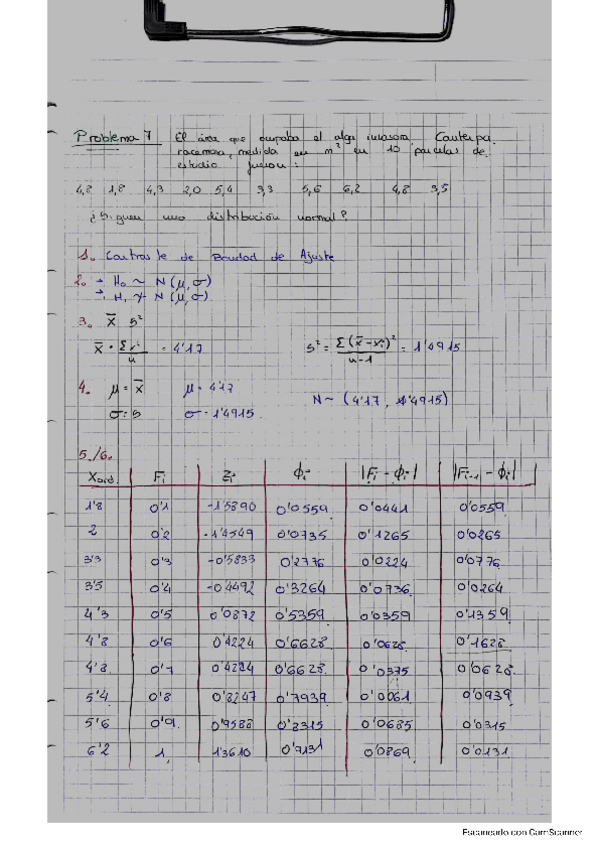 Problema 7 El área que ocupaba el alga invasora Caulerpa
racemosa, medida en m² en 10 parcelas de
estudio fueron:
4,8 1,8 4,3 2,0 5,4 3,3 5,6 6,2 4,8 3,5
¿Siguen una distribución normal?
1. Contraste de Bondad de Ajuste
2. → H₀ ~ N(μ,σ)
→ H₁ ≁ N(μ,σ)
3. x̄ s²
x̄ = Σxi / n = 4'17 s² = Σ(x̄-xi)² / n-1 = 1'4915
4. μ = x̄ μ = 4'17 N ~ (4'17, 1'4915)
σ = s σ = 1'4915
5./6.
Xord. Fi Zi ϕi |Fi - ϕi| |Fi-1 - ϕi|
1'8 0'1 -1'5890 0'0559 0'0441 0'0559
2 0'2 -1'4549 0'0735 0'1265 0'0265
3'3 0'3 -0'5833 0'2776 0'0224 0'0776
3'5 0'4 -0'4492 0'3264 0'0736 0'0264
4'3 0'5 0'0872 0'5359 0'0359 0'1359
4'8 0'6 0'4224 0'6628 0'0628 0'1628
4'8 0'7 0'4224 0'6628 0'0375 0'0628
5'4 0'8 0'8247 0'7939 0'0061 0'0939
5'6 0'9 0'9588 0'8315 0'0685 0'0315
6'2 1 1'3610 0'9131 0'0869 0'0131
Escaneado con CamScanner